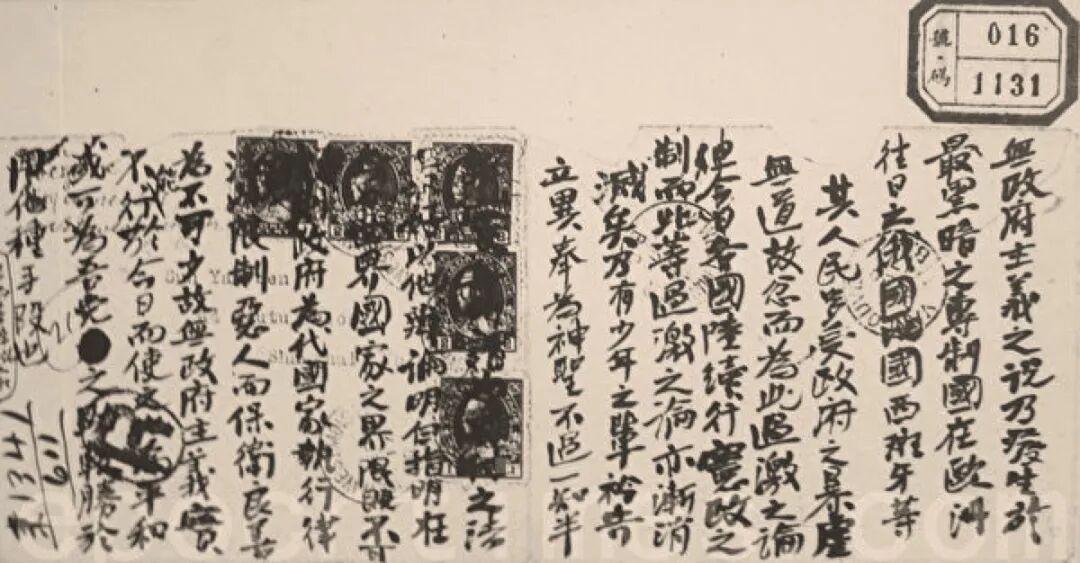 號碼
016
1131
無政府主義之說乃發生於
最黑暗之專制國在歐洲
往日之俄國國西班牙等
其人民多受政府之暴虐
無道故忿而為此過激之論
使今日各國陸續行憲政之
制而此等過激之論亦漸消
滅矣乃有少年之輩奇
立異奉為神聖不過一知半
之法
以他辯論明但指明在
界國家之界限既不可
政府為代國家執行律
限制惡人而保衛良善
為不可少故無政府主義實
不能行於今日而使平和
或可為吾黨之助勝於
用他種手段也